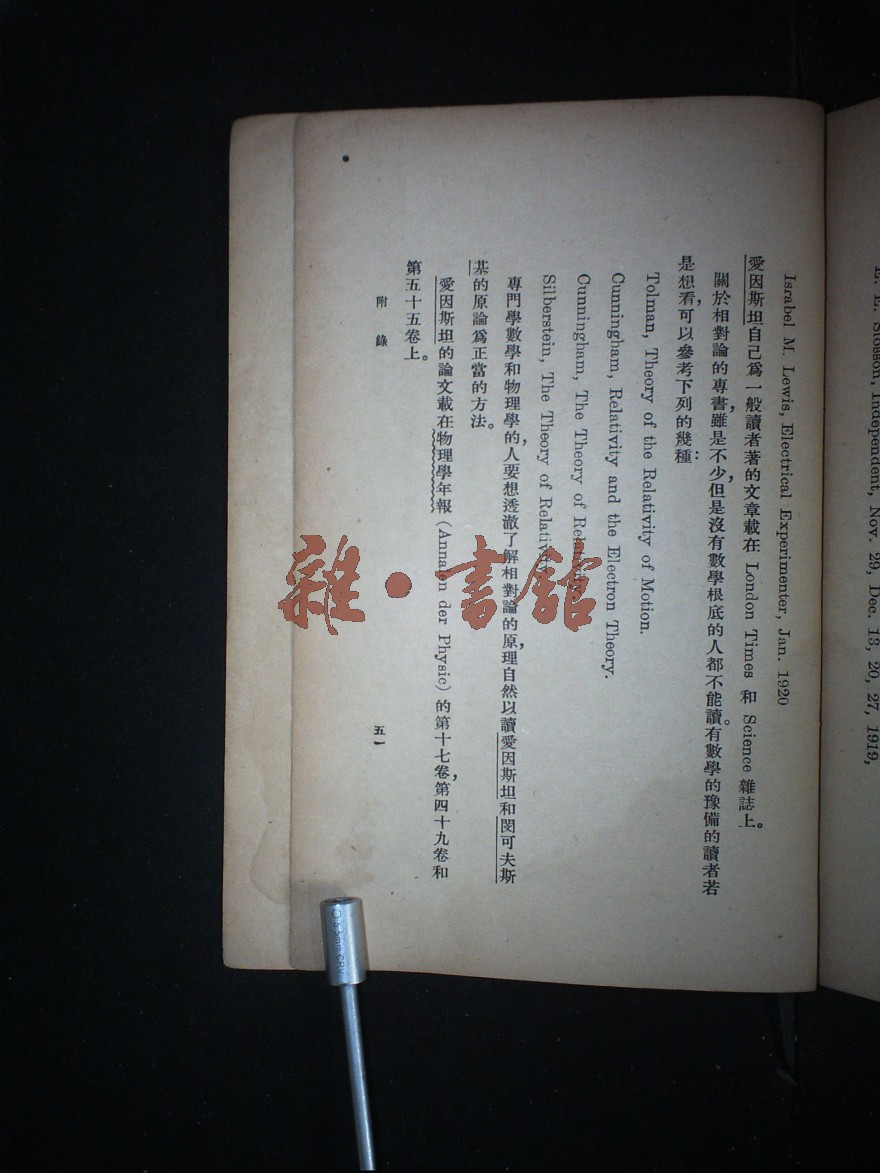 E. E. Slosson, Independent, Nov. 29, Dec. 13, 20, 27, 1919,
Israbel M. Lewis, Electrical Experimenter, Jan. 1920
愛因斯坦自己爲一般讀者著的文章載在 London Times 和 Science 雜誌上。
關於相對論的專書,雖是不少,但是沒有數學根底的人都不能讀。有數學的豫備的讀者若
是想看,可以參考下列的幾種:
Tolman, Theory of the Relativity of Motion.
Cunningham, Relativity and the Electron Theory.
Cunningham, The Theory of Relativity.
Silberstein, The Theory of Relativity.
專門學數學和物理學的人,要想透澈了解相對論的原理,自然以讀愛因斯坦和閔可夫斯
基的原論爲正當的方法。
愛因斯坦的論文載在物理學年報 (Annalen der Physic) 的第十七卷,第四十九卷和
第五十五卷上。
附錄
五一
雜·書館
5.5mm CRV